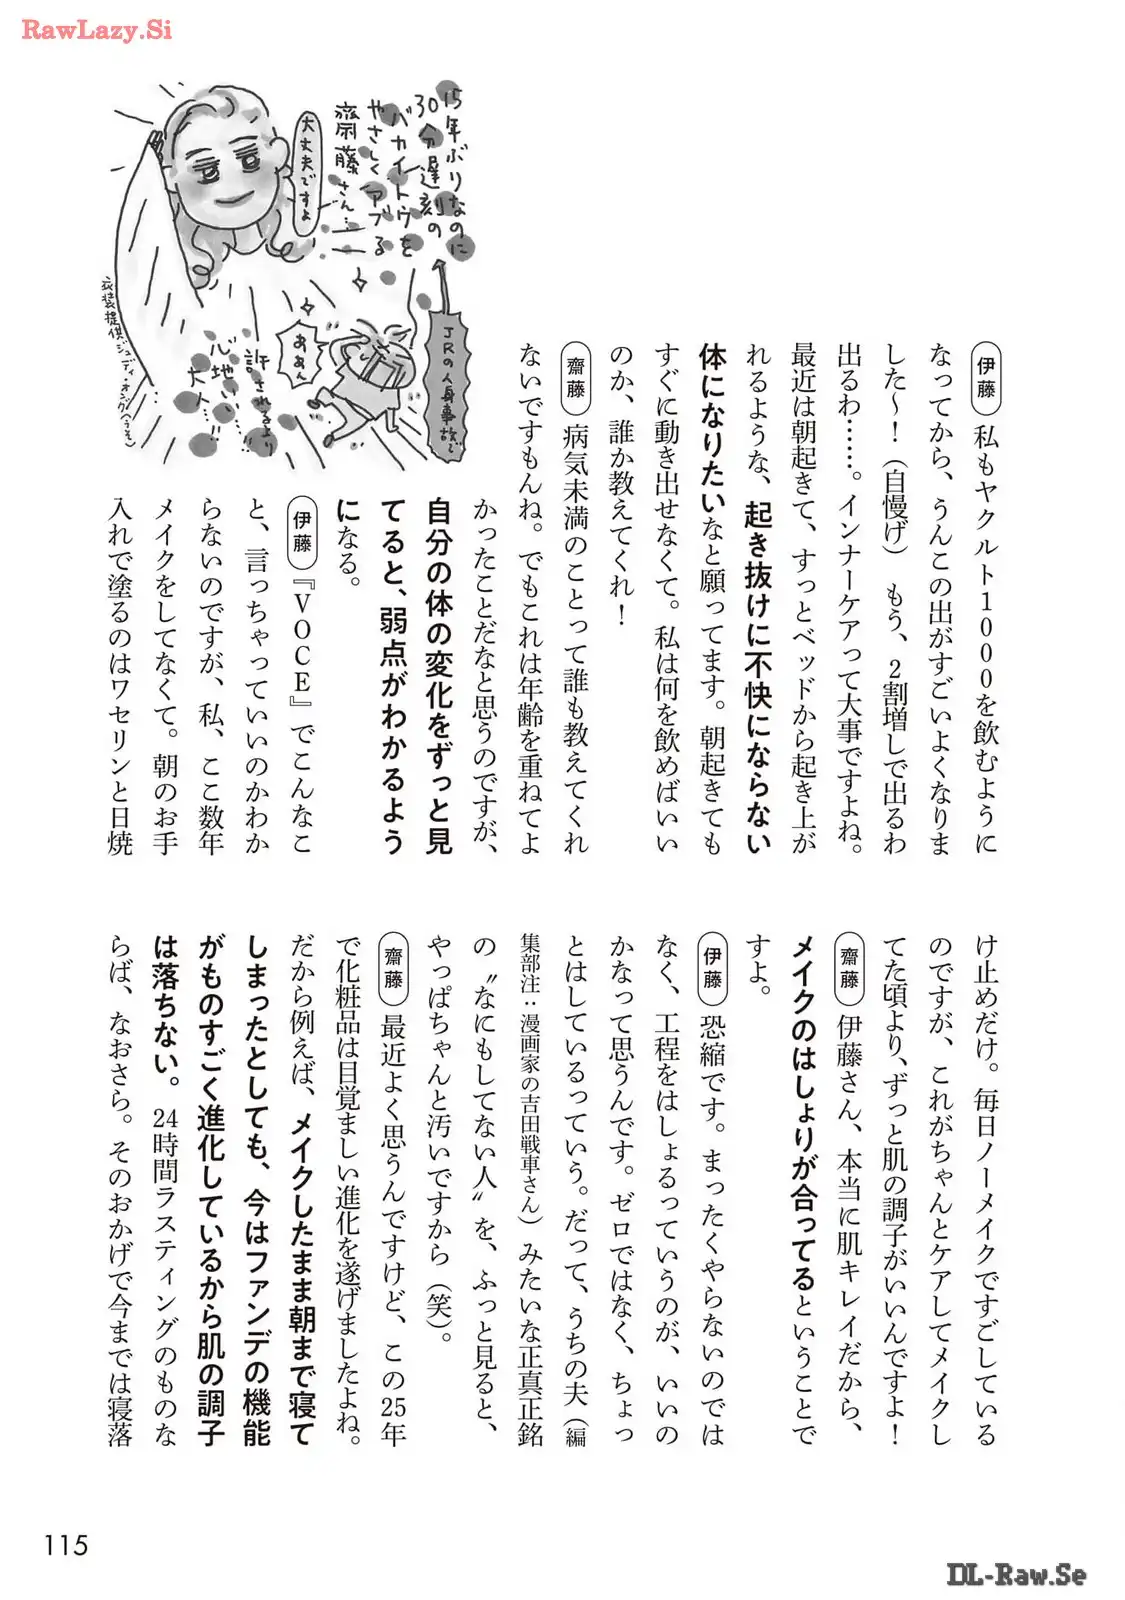 RawLazy.Si
15年ぶりなのに
30分遅刻の
バカイトウを
やさしくアブる
齋藤さん…
大丈夫ですよ
JRの人身事故で
ああん
許されるより
心地いい…
大人…!
衣装提供ジュディ・オング(うそ)
伊藤 私もヤクルト1000を飲むように
なってから、うんこの出がすごいよくなりま
した〜！（自慢げ） もう、2割増しで出るわ
出るわ……。インナーケアって大事ですよね。
最近は朝起きて、すっとベッドから起き上が
れるような、起き抜けに不快にならない
体になりたいなと願ってます。朝起きても
すぐに動き出せなくて。私は何を飲めばいい
のか、誰か教えてくれ！
齋藤 病気未満のことって誰も教えてくれ
ないですもんね。でもこれは年齢を重ねてよ
かったことだなと思うのですが、
自分の体の変化をずっと見
てると、弱点がわかるよう
になる。
伊藤 『VOCE』でこんなこ
と、言っちゃっていいのかわか
らないのですが、私、ここ数年
メイクをしてなくて。朝のお手
入れで塗るのはワセリンと日焼
け止めだけ。毎日ノーメイクですごしている
のですが、これがちゃんとケアしてメイクし
てた頃より、ずっと肌の調子がいいんですよ！
齋藤 伊藤さん、本当に肌キレイだから、
メイクのはしょりが合ってるということで
すよ。
伊藤 恐縮です。まったくやらないのでは
なく、工程をはしょるっていうのが、いいの
かなって思うんです。ゼロではなく、ちょっ
とはしているっていう。だって、うちの夫（編
集部注：漫画家の吉田戦車さん）みたいな正真正銘
の〝なにもしてない人〟を、ふっと見ると、
やっぱちゃんと汚いですから（笑）。
齋藤 最近よく思うんですけど、この25年
で化粧品は目覚ましい進化を遂げましたよね。
だから例えば、メイクしたまま朝まで寝て
しまったとしても、今はファンデの機能
がものすごく進化しているから肌の調子
は落ちない。24時間ラスティングのものな
らば、なおさら。そのおかげで今までは寝落
115
DL-Raw.Se